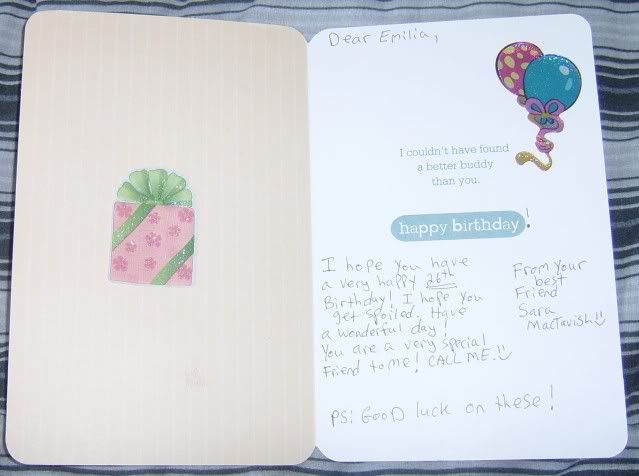 Dear Emilia,
I couldn't have found
a better buddy
than you.
happy birthday!
I hope you have
a very happy 26th
Birthday! I hope you
get spoiled. Have
a wonderful day!
You are a very special
Friend to me! CALL ME. :)
From Your
best
Friend
Sara
MacTavish :)
PS! GOOD luck on these!